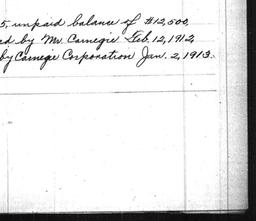 5, unpaid balance of $12,500,
ed by Mr. Carnegie Feb. 12, 1912,
by Carnegie Corporation Jan. 2, 1913.